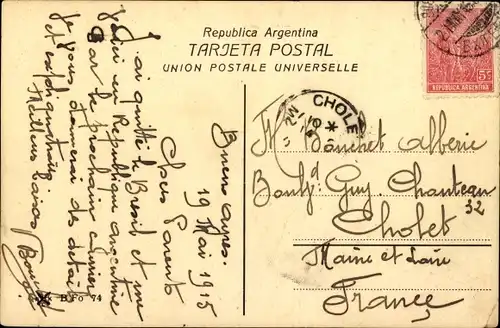 Republica Argentina
TARJETA POSTAL
UNION POSTALE UNIVERSELLE
5c
REPUBLICA ARGENTINA
CHOLE
Buenos Ayres.
19 Mai 1915
Chers Parents
J'ai quitté le Brésil et me
voici en République Argentine
Par le prochain courrier
je vous donnerai des détails
Meilleurs baisers
Mr Bouchet Alberic
Boulvd Guy Chanteau
32
Cholet
Maine et Loire
France
B Fo 74